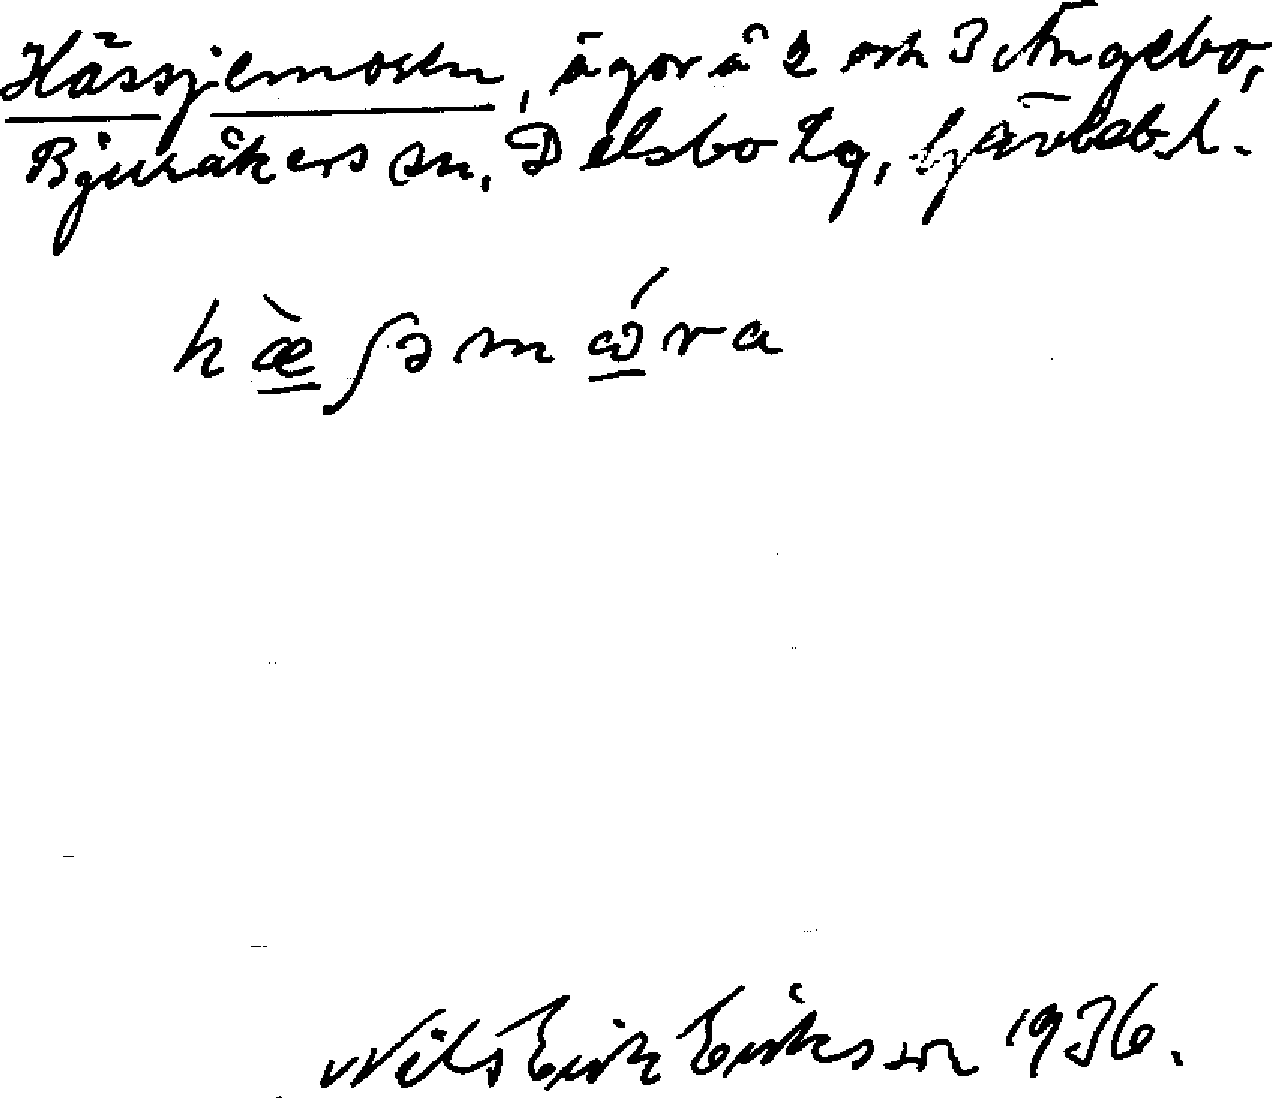 Hässjemoren, ägor å 2 och 3 Ängebo,
Bjuråkers sn, Delsbo tg, Gävlebl.
hæ̀ʃəmώra
Nils Erik Eriksson 1936.